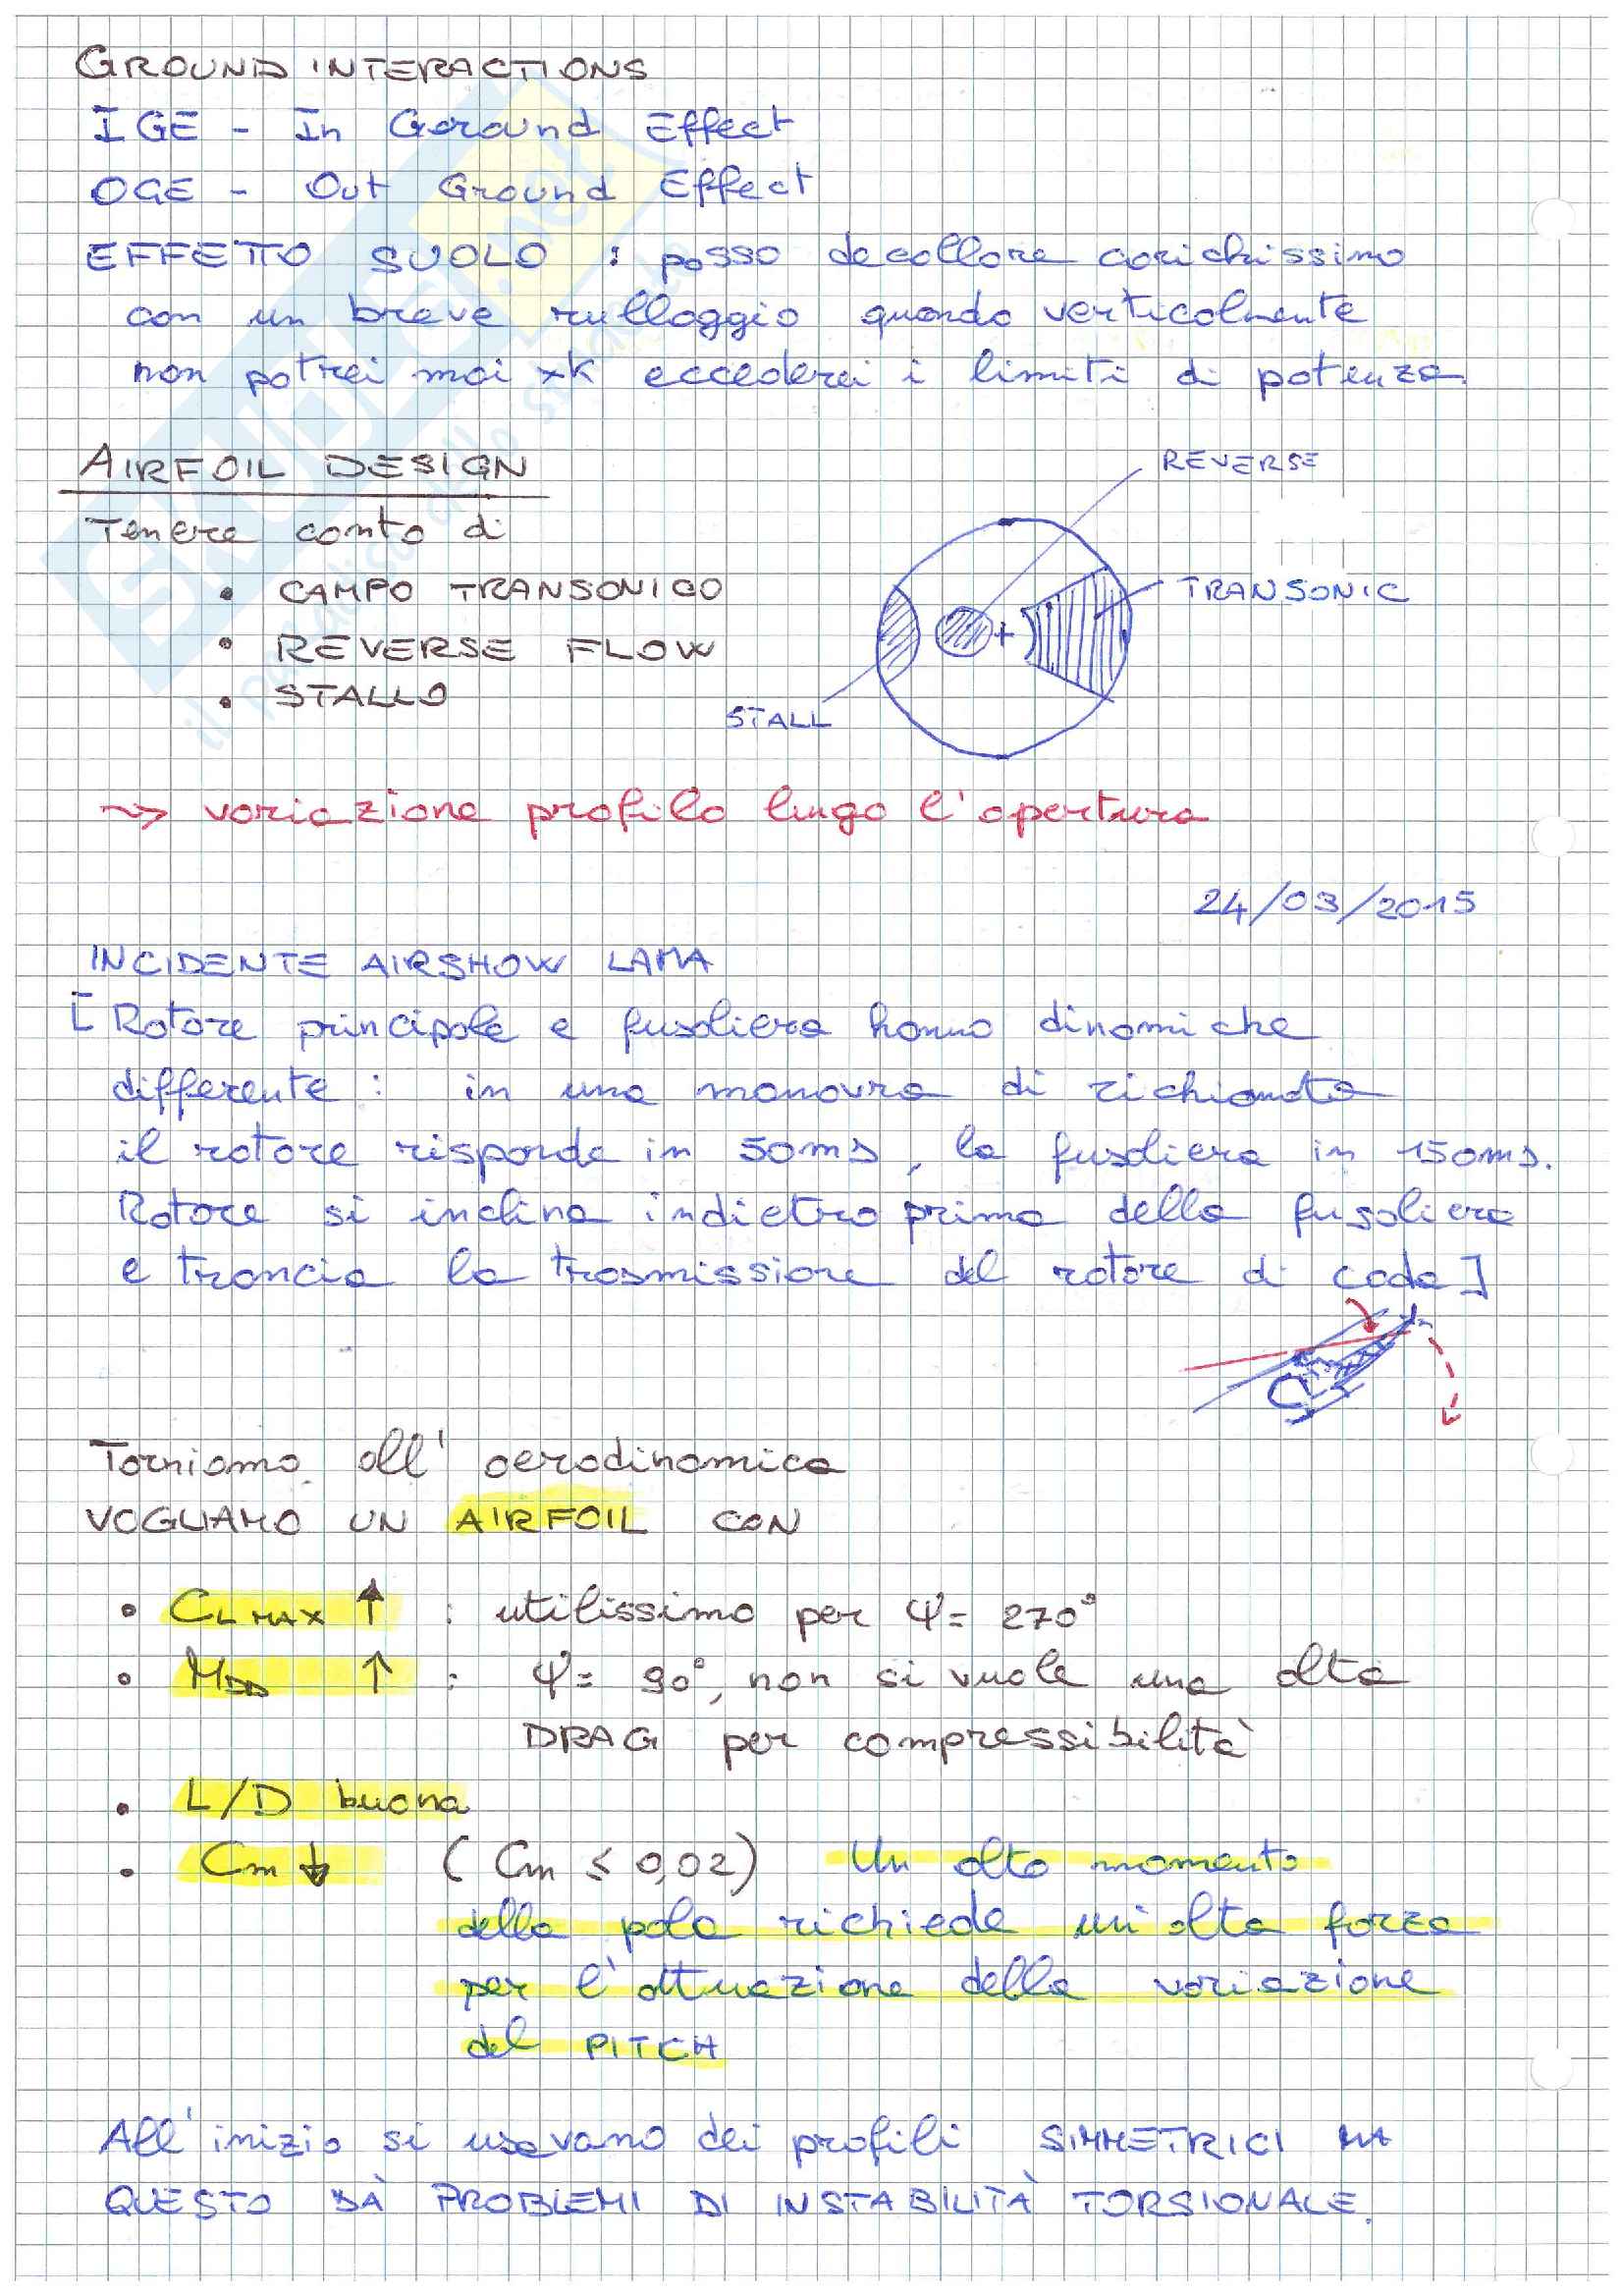 GROUND INTERACTIONS
IGE - In Ground Effect
OGE - Out Ground Effect
EFFETTO SUOLO : posso decollare carichissimo
con un breve rullaggio quando verticalmente
non potrei mai xk eccederei i limiti di potenza
AIRFOIL DESIGN
REVERSE
Tenere conto di
• CAMPO TRANSONICO
TRANSONIC
• REVERSE FLOW
• STALLO
STALL
~> variazione profilo lungo l'apertura
24/03/2015
INCIDENTE AIRSHOW LAMA
[Rotore principale e fusoliera hanno dinamiche
differente : in una manovra di richiamata
il rotore risponde in 50ms, la fusoliera in 150ms.
Rotore si inclina indietro prima della fusoliera
e trancia la trasmissione del rotore di coda]
Torniamo all'aerodinamica
VOGLIAMO UN AIRFOIL CON
• CL MAX ↑ : utilissimo per ψ= 270°
• MDD ↑ : ψ= 90°, non si vuole una alta
DRAG per compressibilità
• L/D buona
• Cm ↓ (Cm ≤ 0,02) Un alto momento
della pala richiede un'alta forza
per l'attuazione della variazione
del PITCH
All'inizio si usavano dei profili SIMMETRICI MA
QUESTO DÀ PROBLEMI DI INSTABILITÀ TORSIONALE.